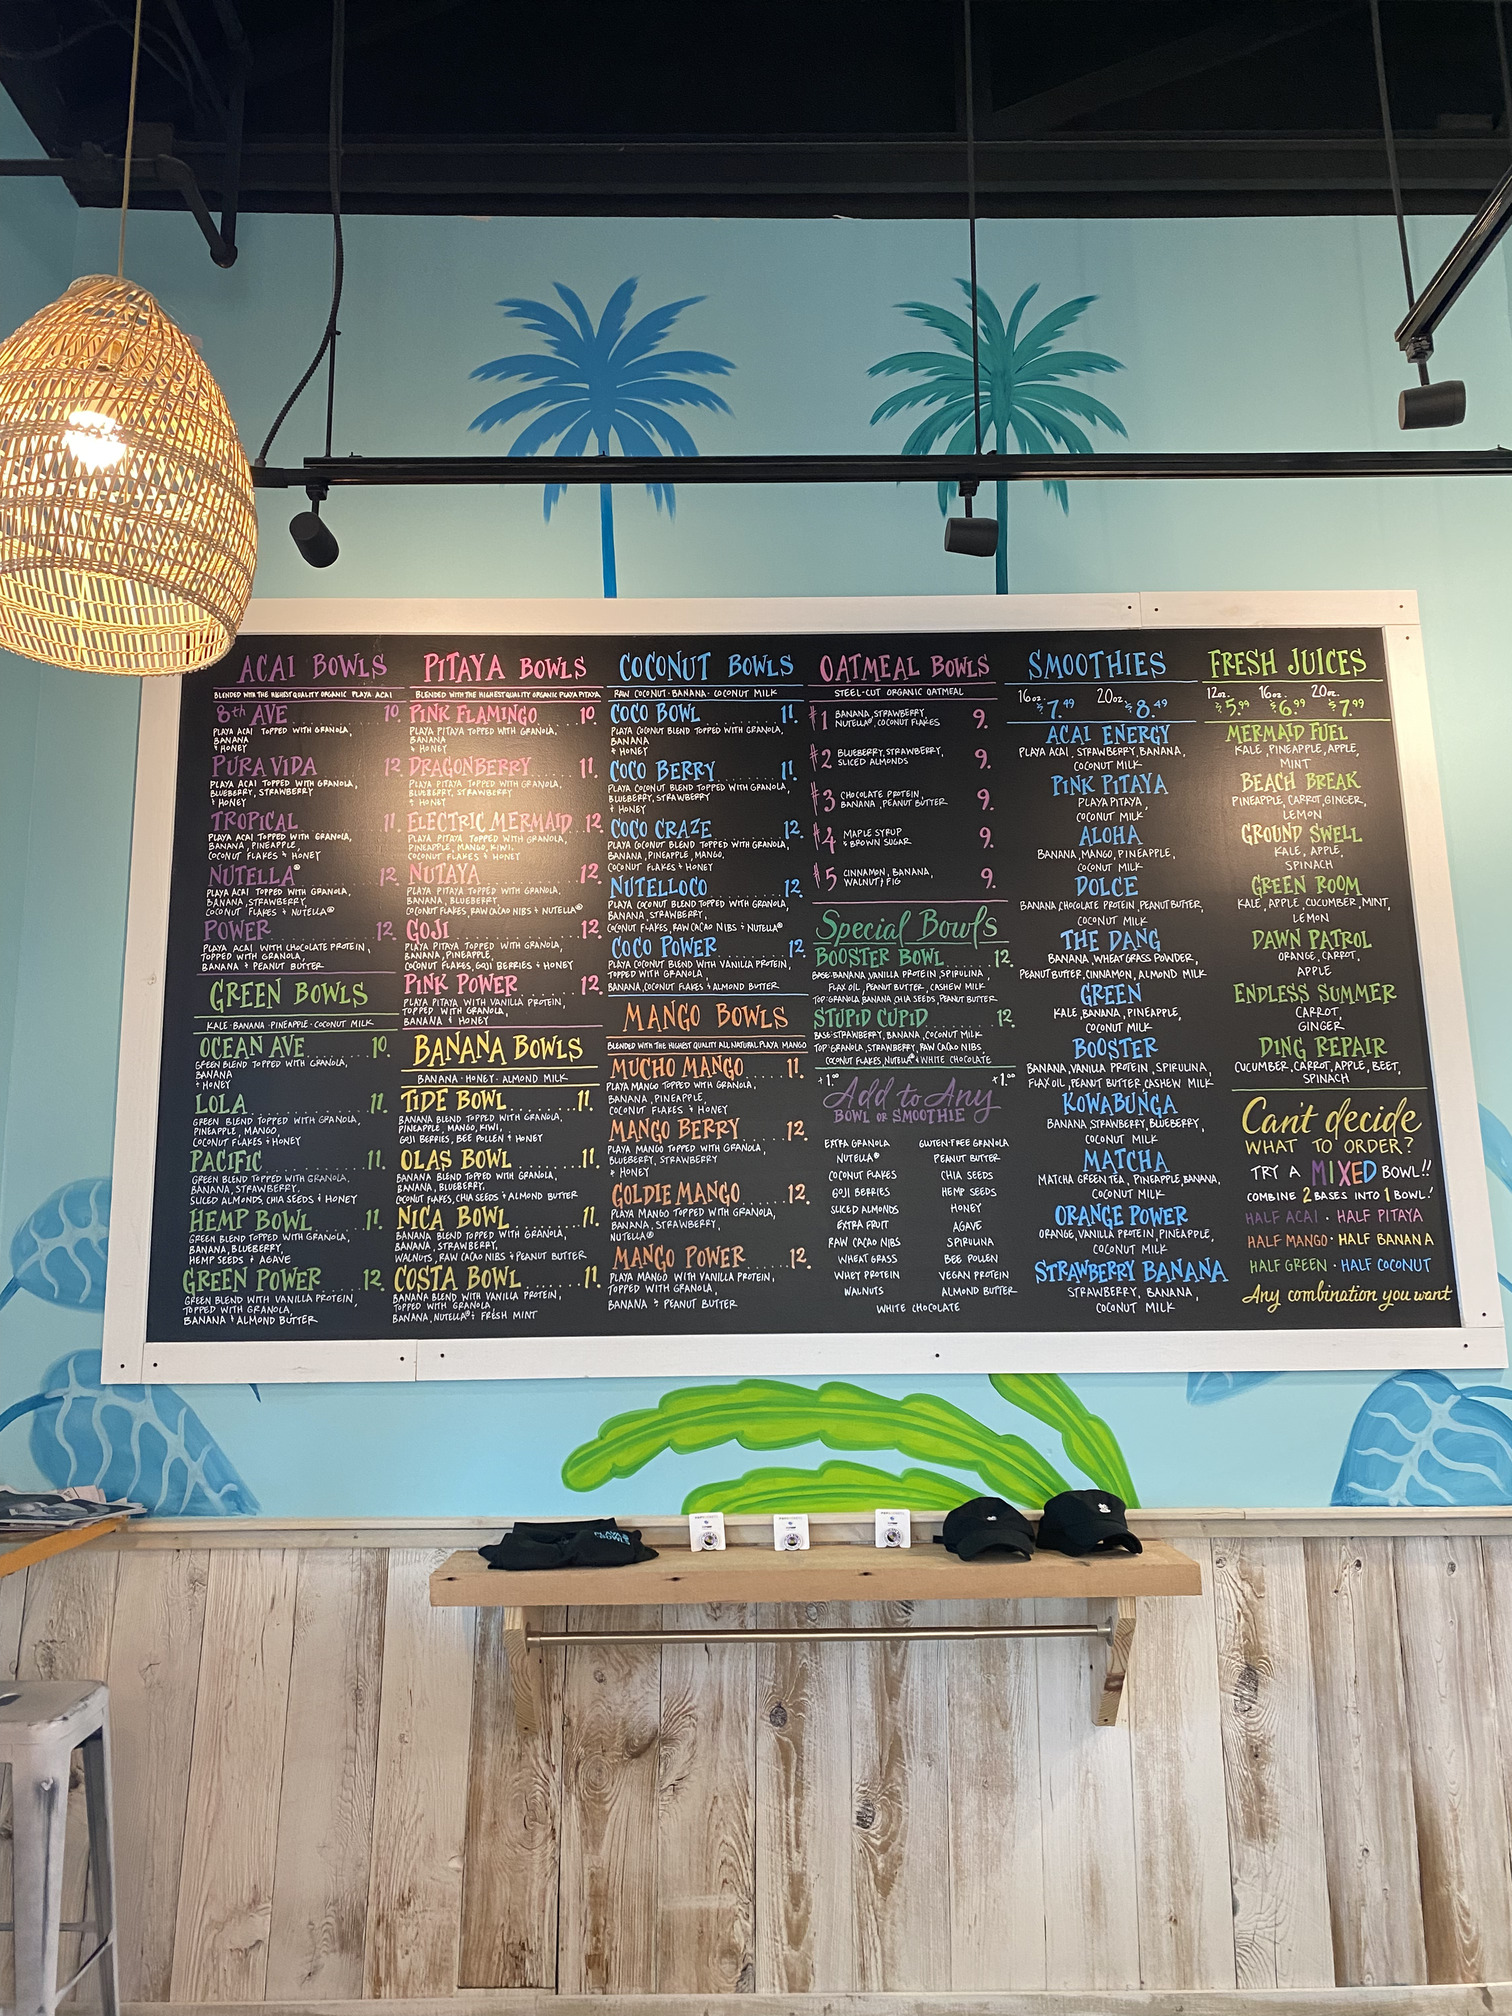 ACAI BOWLS
BLENDED WITH THE HIGHEST QUALITY ORGANIC PLAYA ACAI
8th AVE 10.
PLAYA ACAI TOPPED WITH GRANOLA,
BANANA
& HONEY
PURA VIDA 12.
PLAYA ACAI TOPPED WITH GRANOLA,
BLUEBERRY, STRAWBERRY
& HONEY
TROPICAL 11.
PLAYA ACAI TOPPED WITH GRANOLA,
BANANA, PINEAPPLE,
COCONUT FLAKES & HONEY
NUTELLA® 12.
PLAYA ACAI TOPPED WITH GRANOLA,
BANANA, STRAWBERRY,
COCONUT FLAKES & NUTELLA®
POWER 12.
PLAYA ACAI WITH CHOCOLATE PROTEIN,
TOPPED WITH GRANOLA,
BANANA & PEANUT BUTTER
GREEN BOWLS
KALE · BANANA · PINEAPPLE · COCONUT MILK
OCEAN AVE 10.
GREEN BLEND TOPPED WITH GRANOLA,
BANANA
& HONEY
LOLA 11.
GREEN BLEND TOPPED WITH GRANOLA,
PINEAPPLE, MANGO
COCONUT FLAKES & HONEY
PACIFIC 11.
GREEN BLEND TOPPED WITH GRANOLA,
BANANA, STRAWBERRY,
SLICED ALMONDS, CHIA SEEDS & HONEY
HEMP BOWL 11.
GREEN BLEND TOPPED WITH GRANOLA,
BANANA, BLUEBERRY,
HEMP SEEDS & AGAVE
GREEN POWER 12.
GREEN BLEND WITH VANILLA PROTEIN,
TOPPED WITH GRANOLA,
BANANA & ALMOND BUTTER
PITAYA BOWLS
BLENDED WITH THE HIGHEST QUALITY ORGANIC PLAYA PITAYA
PINK FLAMINGO 10.
PLAYA PITAYA TOPPED WITH GRANOLA,
BANANA
& HONEY
DRAGONBERRY 11.
PLAYA PITAYA TOPPED WITH GRANOLA,
BLUEBERRY, STRAWBERRY
& HONEY
ELECTRIC MERMAID 12.
PLAYA PITAYA TOPPED WITH GRANOLA,
PINEAPPLE, MANGO, KIWI,
COCONUT FLAKES & HONEY
NUTAYA 12.
PLAYA PITAYA TOPPED WITH GRANOLA,
BANANA, BLUEBERRY
COCONUT FLAKES, RAW CACAO NIBS & NUTELLA®
GOJI 12.
PLAYA PITAYA TOPPED WITH GRANOLA,
BANANA, PINEAPPLE,
COCONUT FLAKES, GOJI BERRIES & HONEY
PINK POWER 12.
PLAYA PITAYA WITH VANILLA PROTEIN,
TOPPED WITH GRANOLA,
BANANA & HONEY
BANANA BOWLS
BANANA · HONEY · ALMOND MILK
TIDE BOWL 11.
BANANA BLEND TOPPED WITH GRANOLA,
PINEAPPLE, MANGO, KIWI,
GOJI BERRIES, BEE POLLEN & HONEY
OLAS BOWL 11.
BANANA BLEND TOPPED WITH GRANOLA,
BANANA, BLUEBERRY,
COCONUT FLAKES, CHIA SEEDS & ALMOND BUTTER
NICA BOWL 11.
BANANA BLEND TOPPED WITH GRANOLA,
BANANA, STRAWBERRY,
WALNUTS, RAW CACAO NIBS & PEANUT BUTTER
COSTA BOWL 11.
BANANA BLEND WITH VANILLA PROTEIN,
TOPPED WITH GRANOLA,
BANANA, NUTELLA® & FRESH MINT
COCONUT BOWLS
RAW COCONUT · BANANA · COCONUT MILK
COCO BOWL 11.
PLAYA COCONUT BLEND TOPPED WITH GRANOLA,
BANANA
& HONEY
COCO BERRY 11.
PLAYA COCONUT BLEND TOPPED WITH GRANOLA,
BLUEBERRY, STRAWBERRY
& HONEY
COCO CRAZE 12.
PLAYA COCONUT BLEND TOPPED WITH GRANOLA,
BANANA, PINEAPPLE, MANGO,
COCONUT FLAKES & HONEY
NUTELLOCO 12.
PLAYA COCONUT BLEND TOPPED WITH GRANOLA,
BANANA, STRAWBERRY,
COCONUT FLAKES, RAW CACAO NIBS & NUTELLA®
COCO POWER 12.
PLAYA COCONUT BLEND WITH VANILLA PROTEIN,
TOPPED WITH GRANOLA
BANANA, COCONUT FLAKES & ALMOND BUTTER
MANGO BOWLS
BLENDED WITH THE HIGHEST QUALITY ALL NATURAL PLAYA MANGO
MUCHO MANGO 11.
PLAYA MANGO TOPPED WITH GRANOLA,
BANANA, PINEAPPLE,
COCONUT FLAKES & HONEY
MANGO BERRY 12.
PLAYA MANGO TOPPED WITH GRANOLA,
BLUEBERRY, STRAWBERRY
& HONEY
GOLDIE MANGO 12.
PLAYA MANGO TOPPED WITH GRANOLA,
BANANA, STRAWBERRY,
NUTELLA®
MANGO POWER 12.
PLAYA MANGO WITH VANILLA PROTEIN,
TOPPED WITH GRANOLA,
BANANA & PEANUT BUTTER
OATMEAL BOWLS
STEEL-CUT ORGANIC OATMEAL
#1 BANANA, STRAWBERRY, 9.
NUTELLA®, COCONUT FLAKES
#2 BLUEBERRY, STRAWBERRY, 9.
SLICED ALMONDS
#3 CHOCOLATE PROTEIN, 9.
BANANA, PEANUT BUTTER
#4 MAPLE SYRUP 9.
& BROWN SUGAR
#5 CINNAMON, BANANA, 9.
WALNUT, FIG
Special Bowls
BOOSTER BOWL 12.
BASE: BANANA, VANILLA PROTEIN, SPIRULINA,
FLAX OIL, PEANUT BUTTER, CASHEW MILK
TOP: GRANOLA, BANANA, CHIA SEEDS, PEANUT BUTTER
STUPID CUPID 12.
BASE: STRAWBERRY, BANANA, COCONUT MILK
TOP: GRANOLA, STRAWBERRY, RAW CACAO NIBS,
COCONUT FLAKES, NUTELLA® & WHITE CHOCOLATE
+1.00 Add to Any +1.00
BOWL OR SMOOTHIE
EXTRA GRANOLA GLUTEN-FREE GRANOLA
NUTELLA® PEANUT BUTTER
COCONUT FLAKES CHIA SEEDS
GOJI BERRIES HEMP SEEDS
SLICED ALMONDS HONEY
EXTRA FRUIT AGAVE
RAW CACAO NIBS SPIRULINA
WHEAT GRASS BEE POLLEN
WHEY PROTEIN VEGAN PROTEIN
WALNUTS ALMOND BUTTER
WHITE CHOCOLATE
SMOOTHIES
16oz. $7.49 20oz. $8.49
ACAI ENERGY
PLAYA ACAI, STRAWBERRY, BANANA,
COCONUT MILK
PINK PITAYA
PLAYA PITAYA,
COCONUT MILK
ALOHA
BANANA, MANGO, PINEAPPLE,
COCONUT MILK
DOLCE
BANANA, CHOCOLATE PROTEIN, PEANUT BUTTER,
COCONUT MILK
THE DANG
BANANA, WHEAT GRASS POWDER,
PEANUT BUTTER, CINNAMON, ALMOND MILK
GREEN
KALE, BANANA, PINEAPPLE,
COCONUT MILK
BOOSTER
BANANA, VANILLA PROTEIN, SPIRULINA,
FLAX OIL, PEANUT BUTTER CASHEW MILK
KOWABUNGA
BANANA, STRAWBERRY, BLUEBERRY,
COCONUT MILK
MATCHA
MATCHA GREEN TEA, PINEAPPLE, BANANA,
COCONUT MILK
ORANGE POWER
ORANGE, VANILLA PROTEIN, PINEAPPLE,
COCONUT MILK
STRAWBERRY BANANA
STRAWBERRY, BANANA,
COCONUT MILK
FRESH JUICES
12oz. $5.99 16oz. $6.99 20oz. $7.99
MERMAID FUEL
KALE, PINEAPPLE, APPLE,
MINT
BEACH BREAK
PINEAPPLE, CARROT, GINGER,
LEMON
GROUND SWELL
KALE, APPLE,
SPINACH
GREEN ROOM
KALE, APPLE, CUCUMBER, MINT,
LEMON
DAWN PATROL
ORANGE, CARROT,
APPLE
ENDLESS SUMMER
CARROT,
GINGER
DING REPAIR
CUCUMBER, CARROT, APPLE, BEET,
SPINACH
Can't decide
WHAT TO ORDER?
TRY A MIXED BOWL!!
COMBINE 2 BASES INTO 1 BOWL!
HALF ACAI · HALF PITAYA
HALF MANGO · HALF BANANA
HALF GREEN · HALF COCONUT
Any combination you want
PLAYA
BOWLS